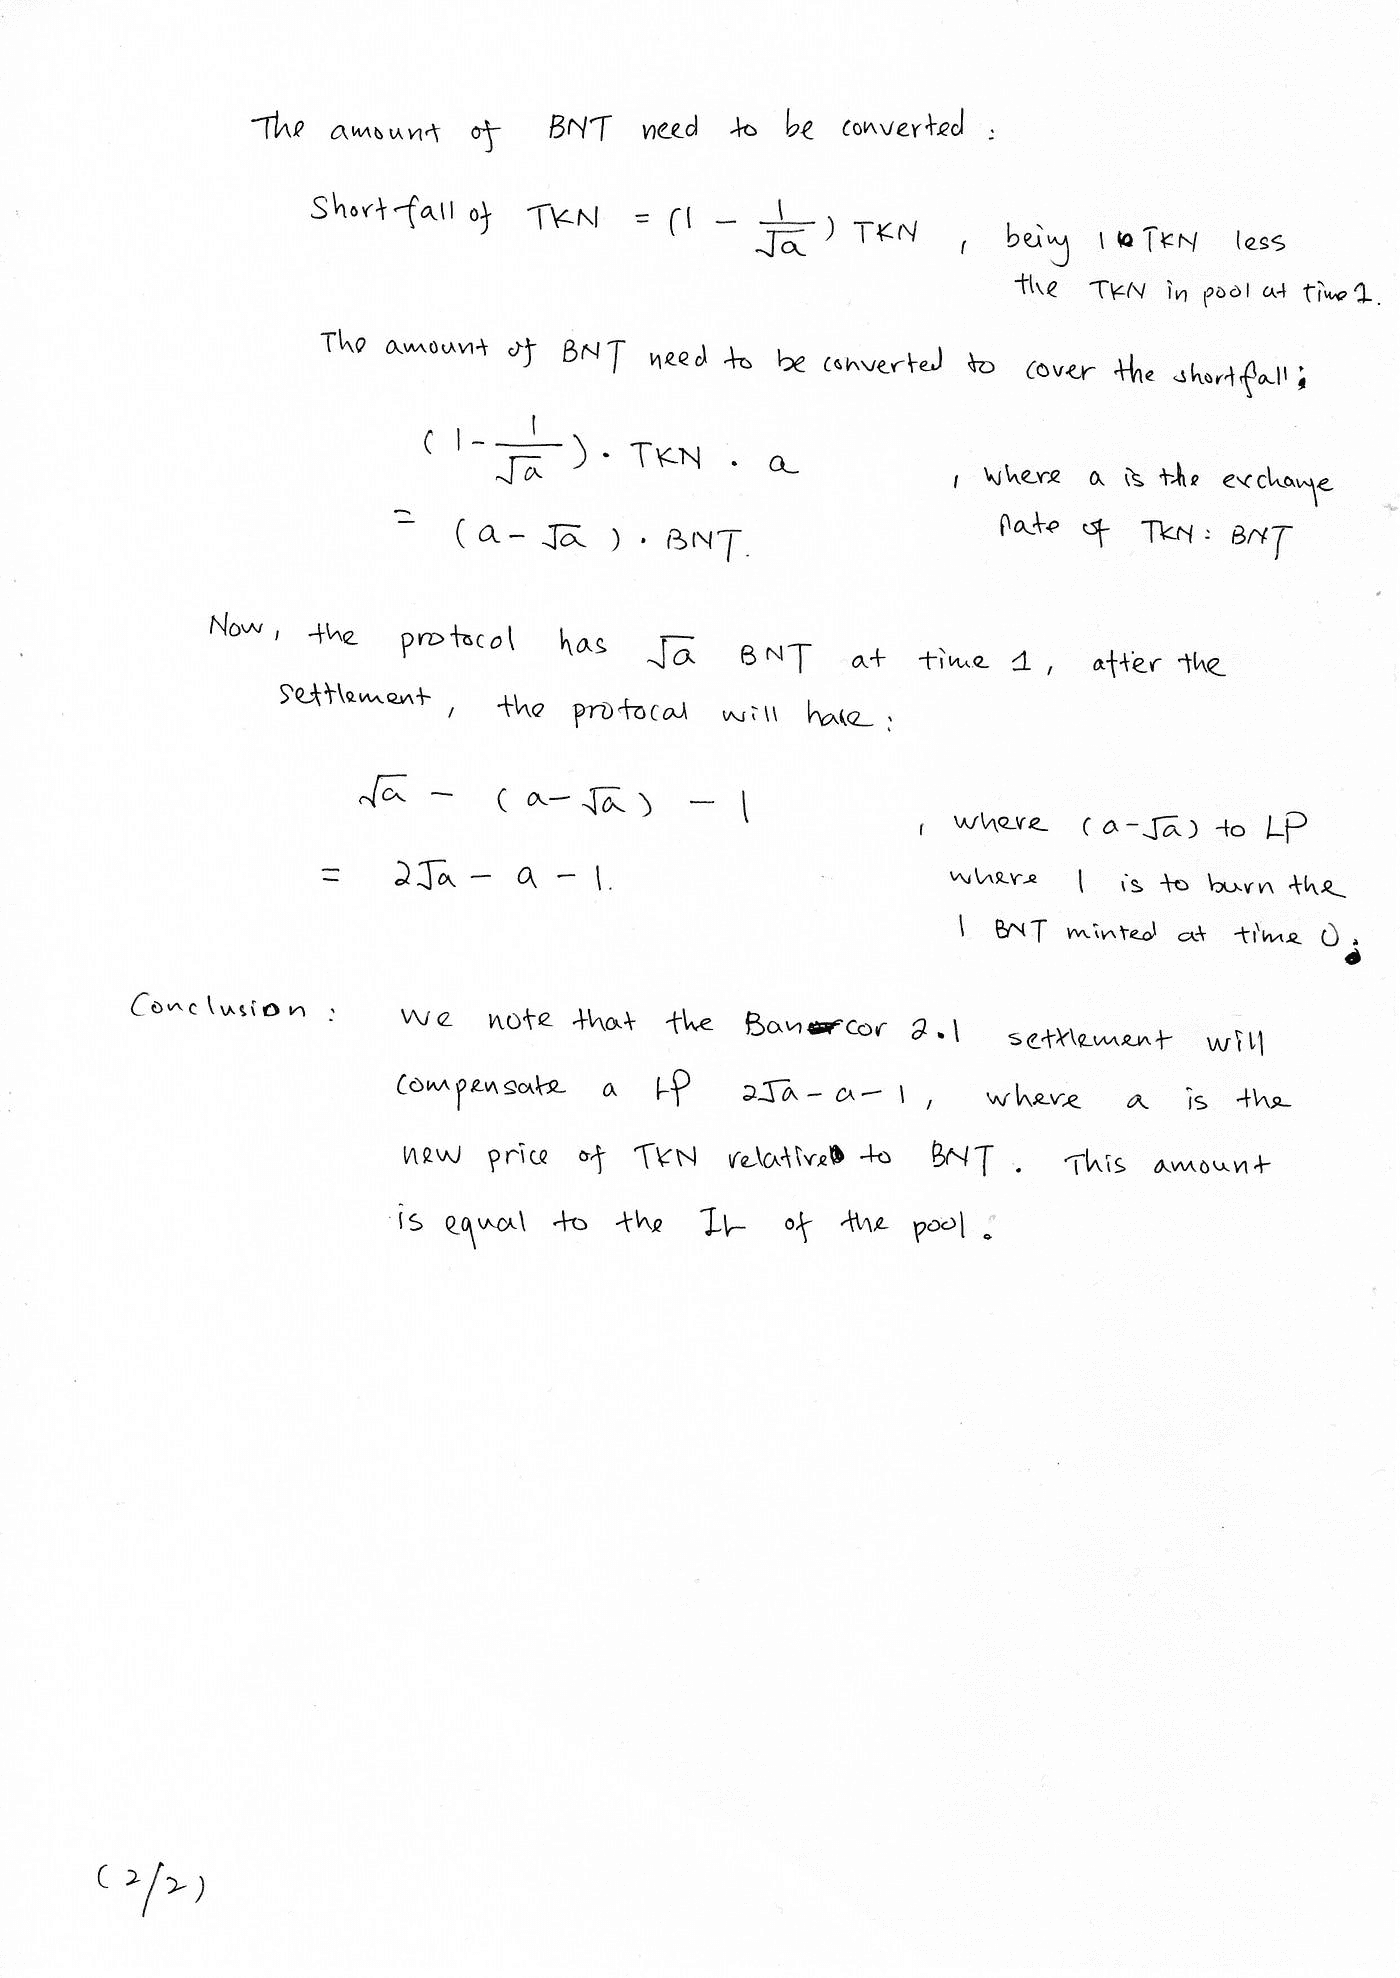 The amount of BNT need to be converted :
Shortfall of TKN = (1 - 1/√a) TKN , being 1 TKN less
the TKN in pool at time 1.
The amount of BNT need to be converted to cover the shortfall:
(1 - 1/√a) · TKN · a , where a is the exchange
= (a - √a) · BNT. rate of TKN : BNT
Now, the protocol has √a BNT at time 1, after the
settlement, the protocal will have :
√a - (a - √a) - 1 , where (a - √a) to LP
= 2√a - a - 1. where 1 is to burn the
1 BNT minted at time 0.
Conclusion : we note that the Bancor 2.1 settlement will
compensate a LP 2√a - a - 1, where a is the
new price of TKN relative to BNT. This amount
is equal to the IL of the pool.
(2/2)